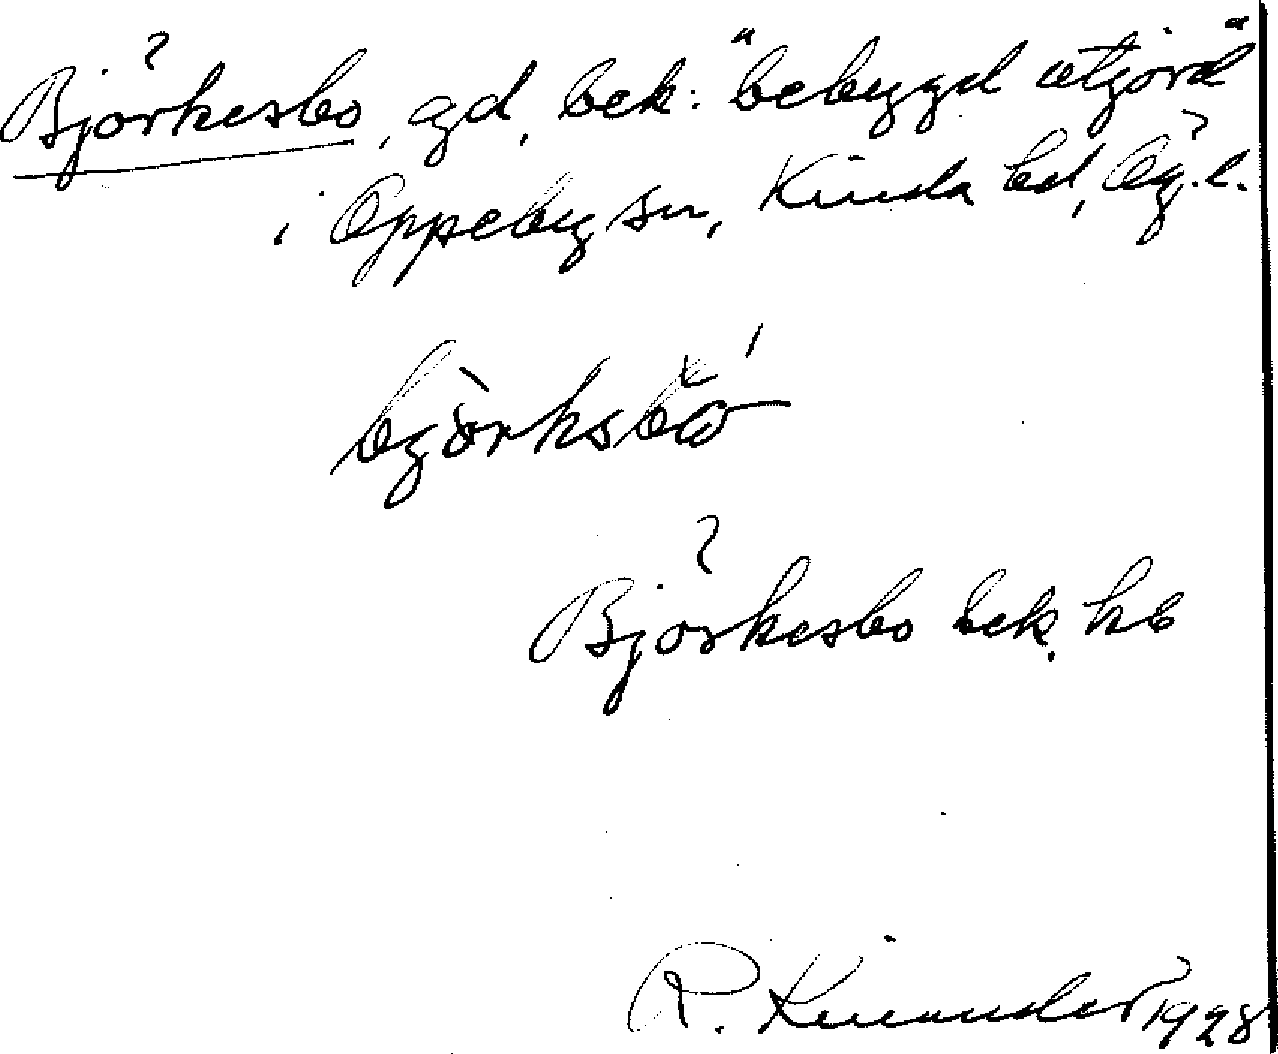 Björkesbo, gd, bek: "bebyggd utjord"
i Oppeby sn, Kinda hd, Ög.l.
bjö̀rksbó
Björkesbo bek. hb
R. Kinander 1928